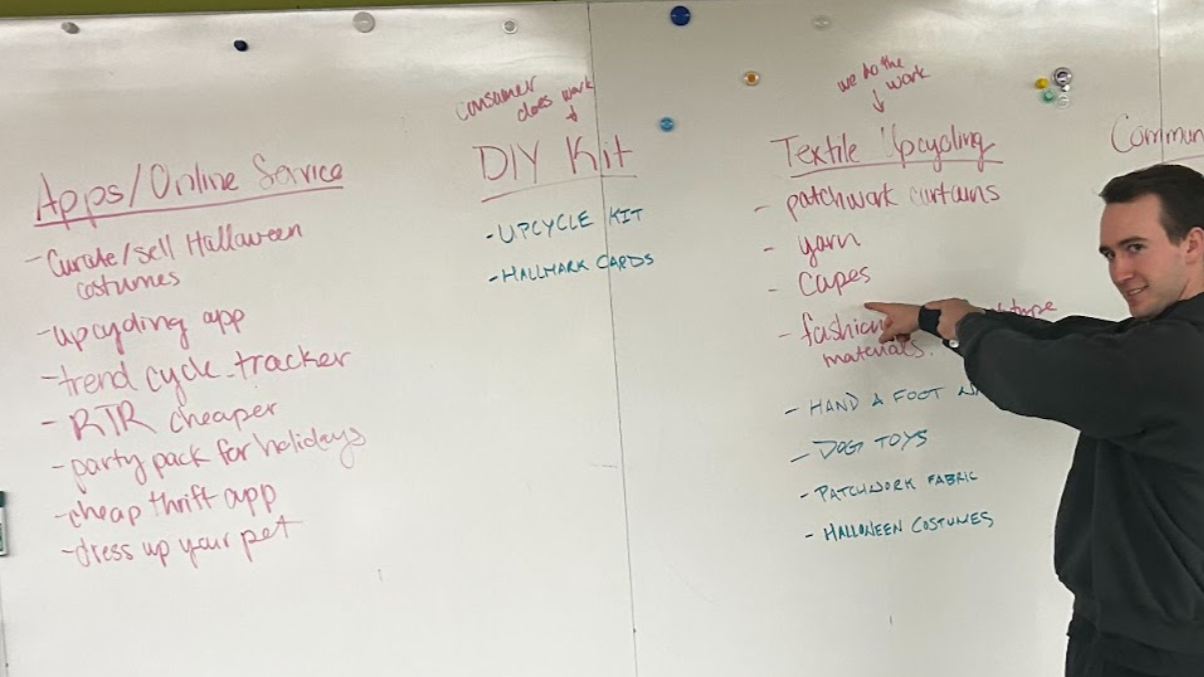 Apps/Online Service
- Curate/sell Hallaween
costumes
- upcycling app
- trend cycle tracker
- RTR cheaper
- party pack for holidays
- cheap thrift app
- dress up your pet
consumer
does work
DIY Kit
- UPCYCLE KIT
- HALLMARK CARDS
we do the
work
Textile Upcycling
- patchwork curtains
- yarn
- Capes
- fashion
materials.
- HAND & FOOT
- DOG TOYS
- PATCHWORK FABRIC
- HALLOWEEN COSTUMES
Commun